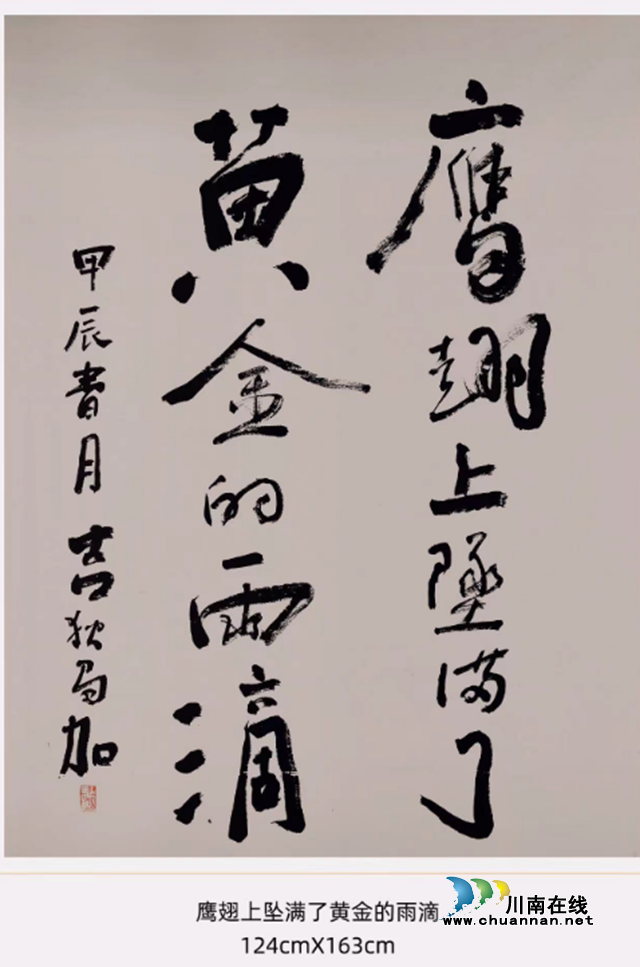 鹰翅上坠满了
黄金的雨滴
甲辰春月 吉狄马加
鹰翅上坠满了黄金的雨滴
124cmX163cm
川南在线
www.chuannan.net